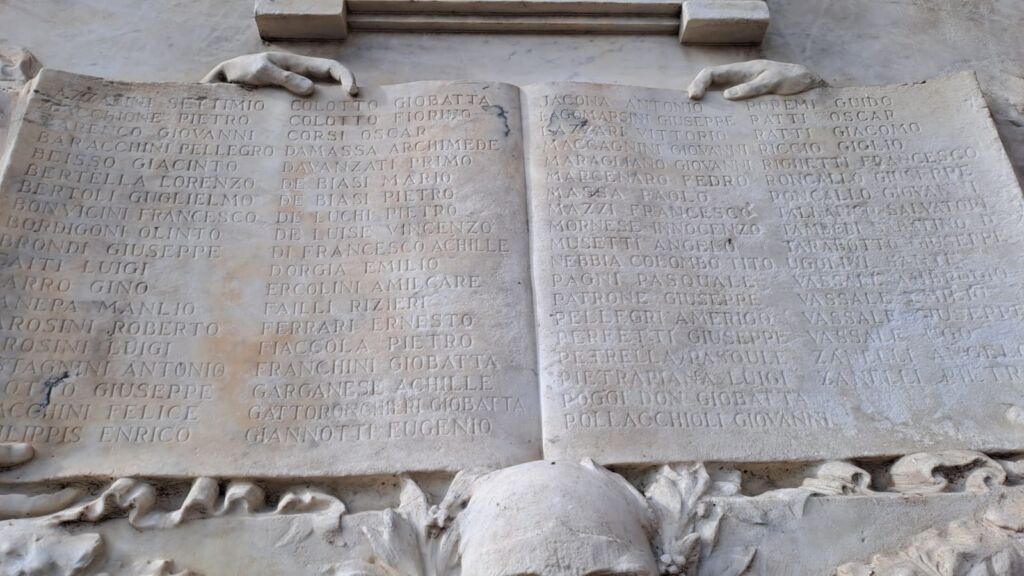 SETTIMIO
PIETRO
GIOVANNI
BARACCHINI PELLEGRO
BEISSO GIACINTO
BERTELLA LORENZO
BERTOLI GUGLIELMO
BONVICINI FRANCESCO
BORDIGONI OLINTO
BRONDI GIUSEPPE
LUIGI
GINO
MANLIO
ROBERTO
LUIGI
ANTONIO
GIUSEPPE
FELICE
ENRICO
COLOTTO GIOBATTA
COLOTTO FIORINO
CORSI OSCAR
DAMASSA ARCHIMEDE
DAVANZATI PRIMO
DE BIASI MARIO
DE BIASI PIETRO
DE LUCHI PIETRO
DE LUISE VINCENZO
DI FRANCESCO ACHILLE
DORGIA EMILIO
ERCOLINI AMILCARE
FAILLI RIZIERI
FERRARI ERNESTO
FIACCOLA PIETRO
FRANCHINI GIOBATTA
GARGANESE ACHILLE
GATTORORCHIERI GIOBATTA
GIANNOTTI EUGENIO
JACONA ANTONIO
LAGOMARSINI GIUSEPPE
LAZZARI VITTORIO
MACCAGNINI GIOVANNI
MARAGLIANO GIOVANNI
MARCENARO PEDRO
MASSA PAOLO
MAZZI FRANCESCO
MORNESE INNOCENZO
MUSETTI ANGELO
NEBBIA COLOMBO TITO
PAGNI PASQUALE
PATRONE GIUSEPPE
PELLEGRI AMERIGO
PERFETTI GIUSEPPE
PETRELLA PASQULE
PIETRAPIANA LUIGI
POGGI DON GIOBATTA
POLLACCHIOLI GIOVANNI
POREMI GUIDO
RATTI OSCAR
RATTI GIACOMO
RICCIO GIGLIO
RIGHETTI FRANCESCO
RONCALLO GIUSEPPE
RONCALLO GIOVANNI
TARABOTTO
UGOLINI
VASSALE
VASSALE
VASSALE GIUSEPPE
ZANELLI
ZANELLI